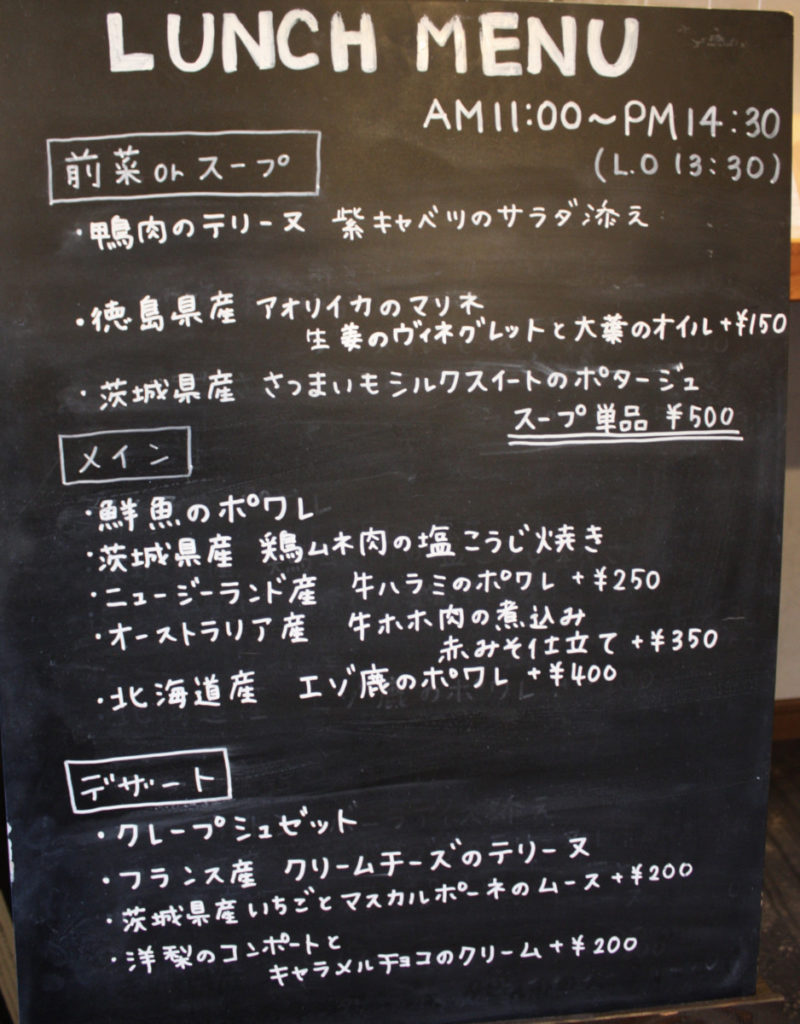 LUNCH MENU
AM11:00〜PM14:30
(L.O 13:30)
前菜 or スープ
・鴨肉のテリーヌ 紫キャベツのサラダ添え
・徳島県産 アオリイカのマリネ
生姜のヴィネグレットと大葉のオイル+¥150
・茨城県産 さつまいもシルクスイートのポタージュ
スープ単品 ¥500
メイン
・鮮魚のポワレ
・茨城県産 鶏ムネ肉の塩こうじ焼き
・ニュージーランド産 牛ハラミのポワレ +¥250
・オーストラリア産 牛ホホ肉の煮込み
赤みそ仕立て +¥350
・北海道産 エゾ鹿のポワレ +¥400
デザート
・クレープシュゼット
・フランス産 クリームチーズのテリーヌ
・茨城県産いちごとマスカルポーネのムース +¥200
・洋梨のコンポートと
キャラメルチョコのクリーム +¥200